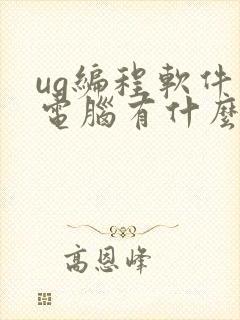 ug編程軟件
電腦有什麼
高恩峰